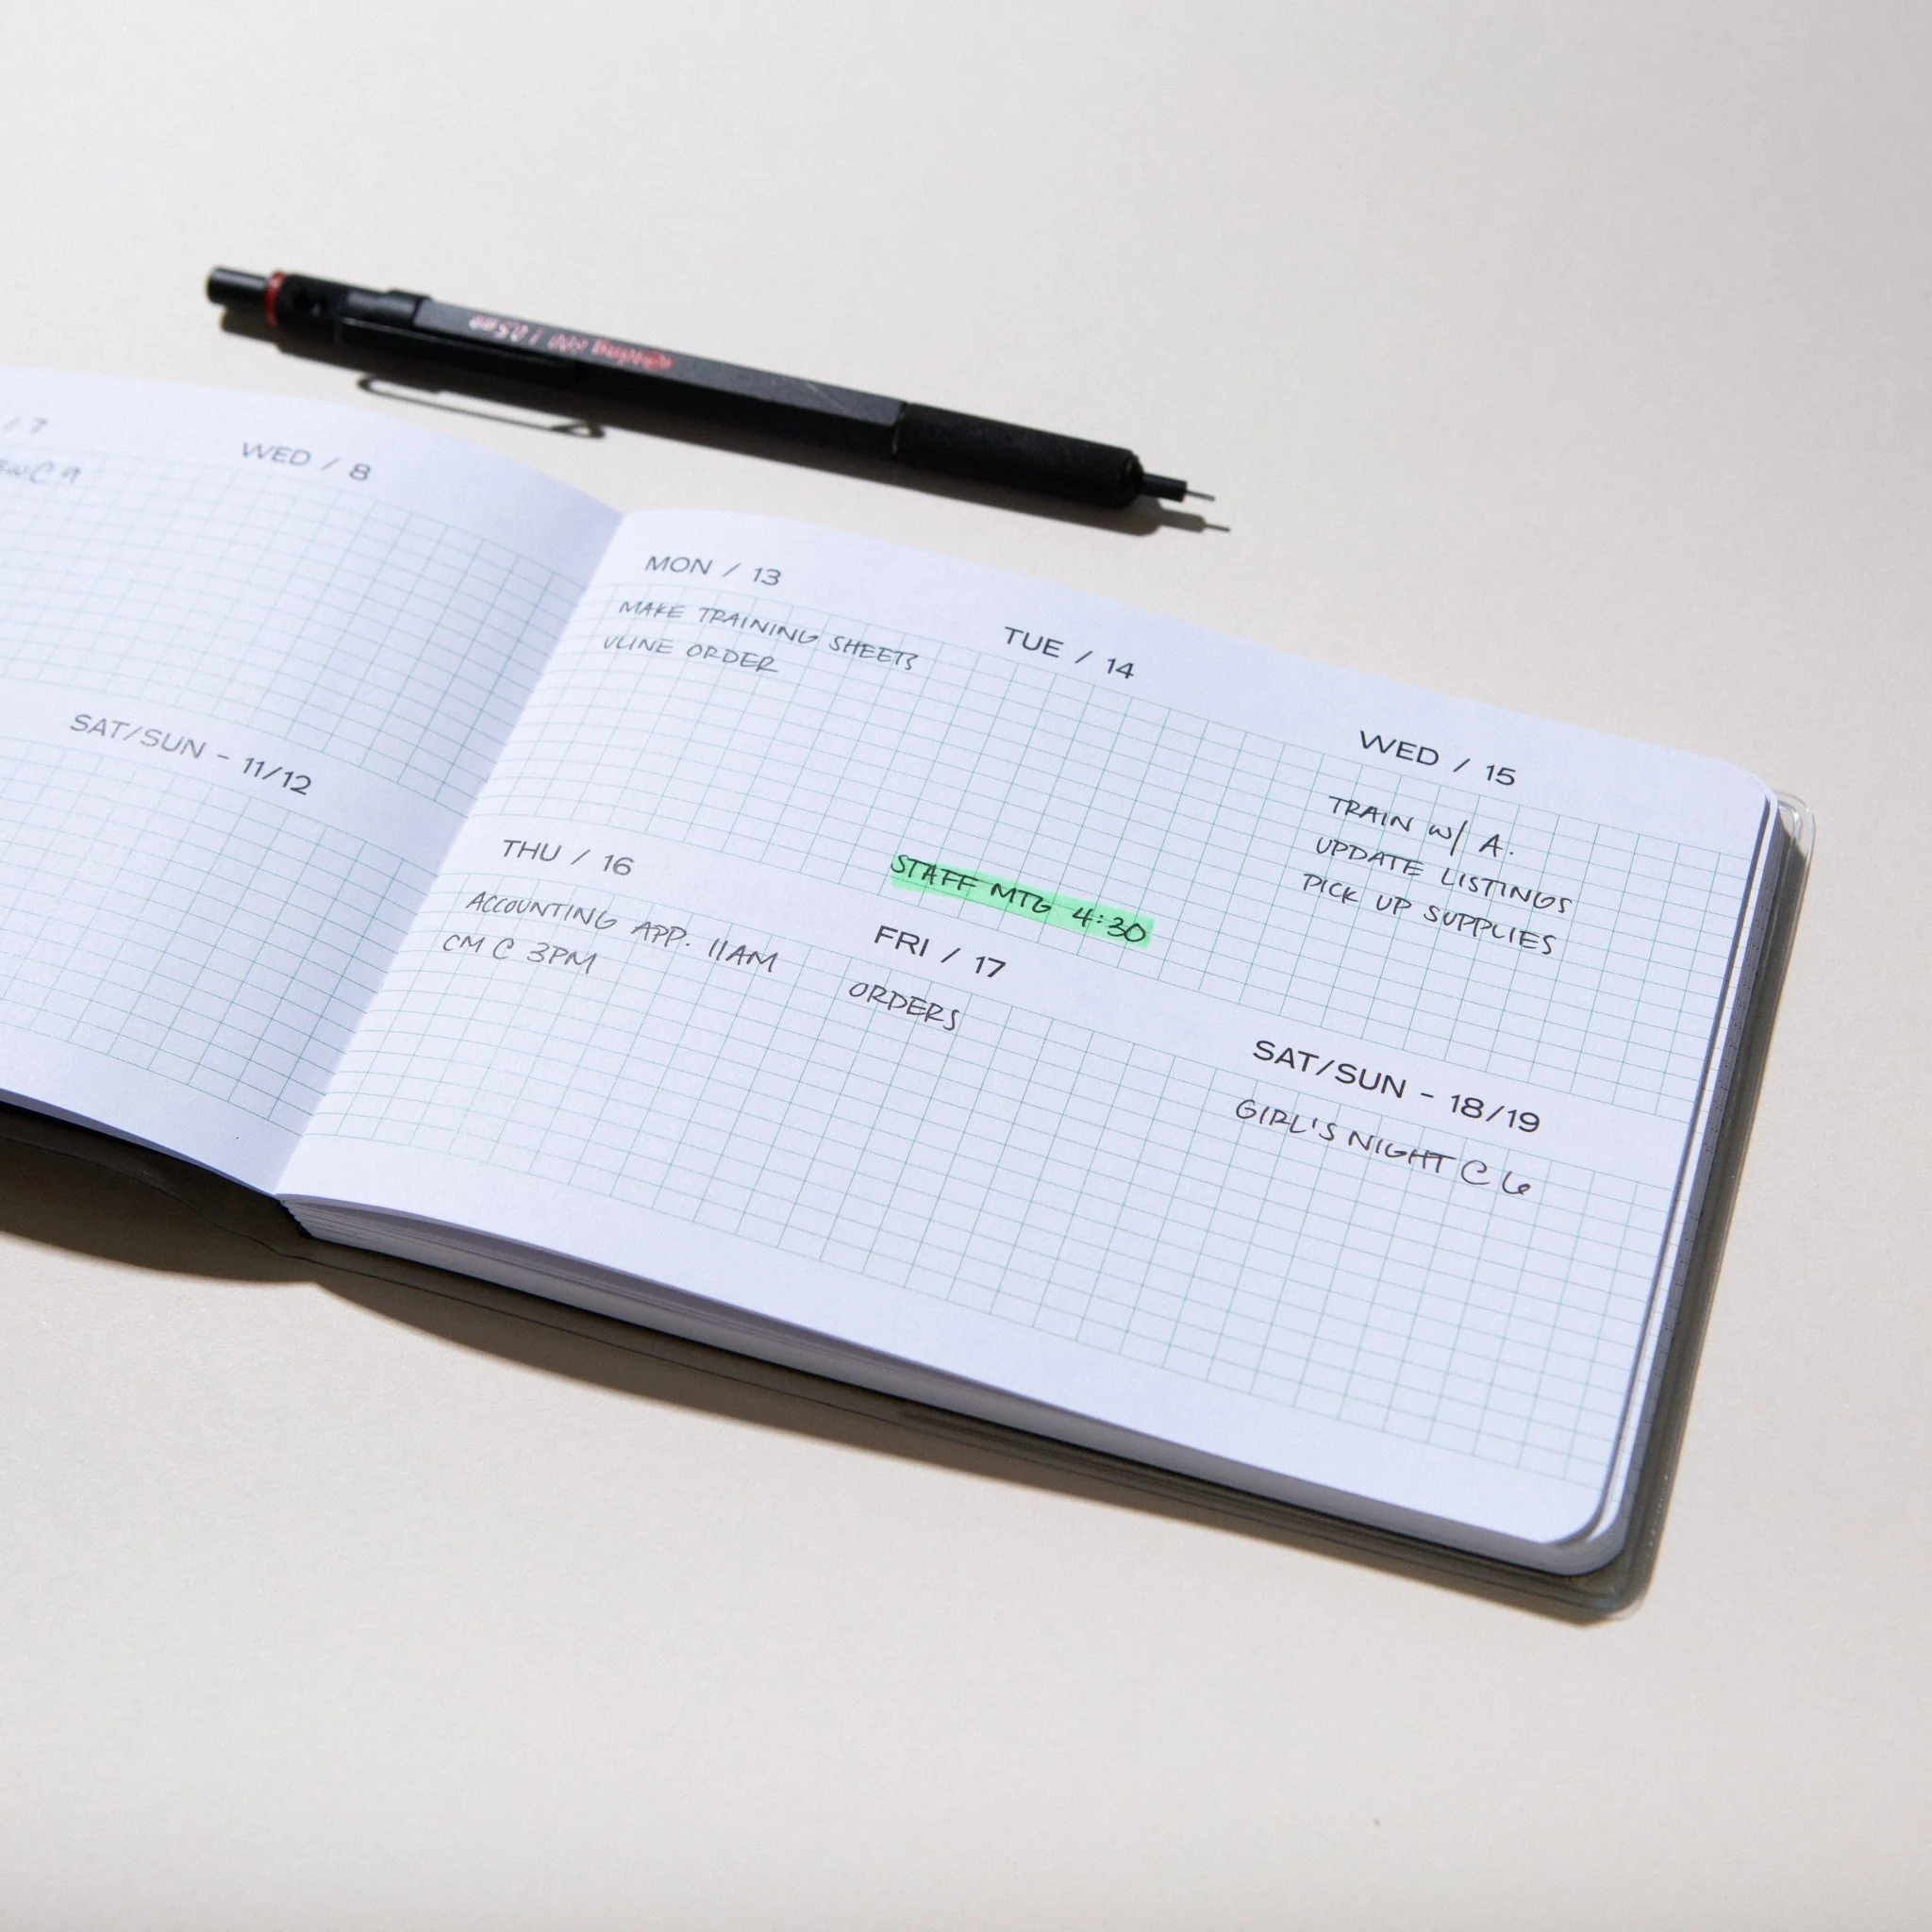 rotring 600 / 0.5
/ 7
WED / 8
SAT/SUN - 11/12
MON / 13
MAKE TRAINING SHEETS
ULINE ORDER
TUE / 14
STAFF MTG 4:30
WED / 15
TRAIN w/ A.
UPDATE LISTINGS
PICK UP SUPPLIES
THU / 16
ACCOUNTING APP. 11AM
CM C 3PM
FRI / 17
ORDERS
SAT/SUN - 18/19
GIRL'S NIGHT C 6